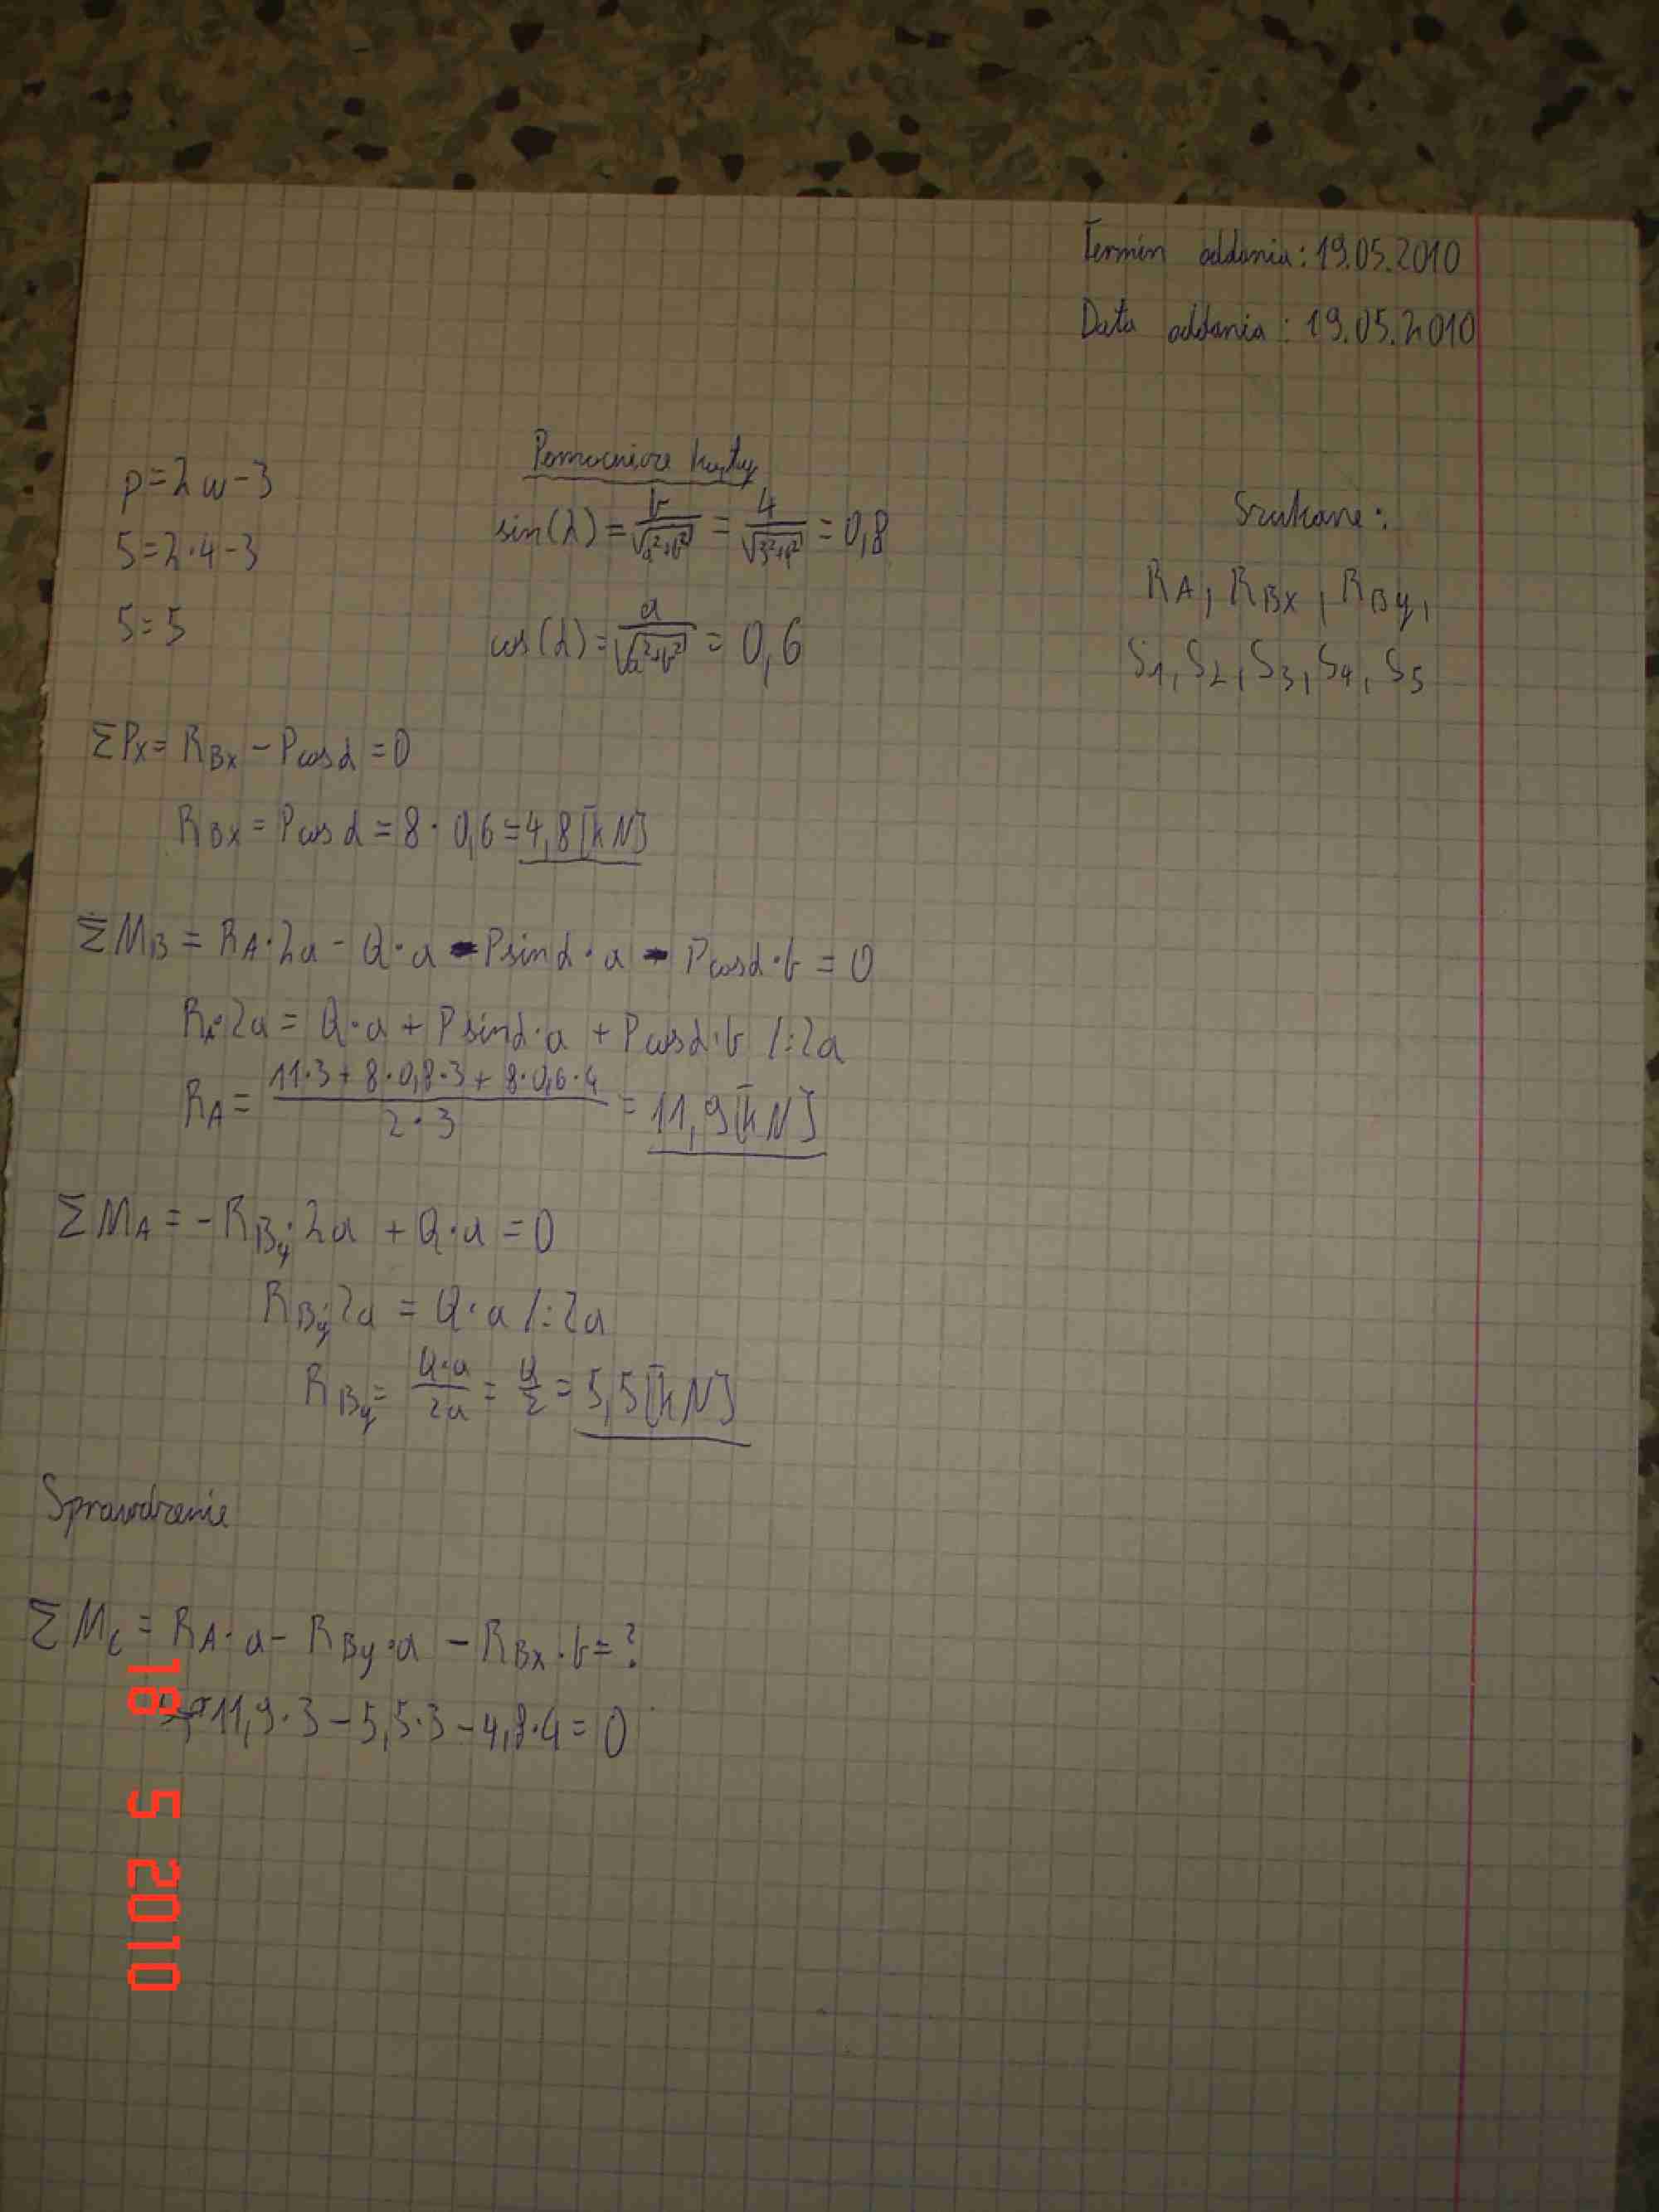 Termin oddania: 19.05.2010
Data oddania: 19.05.2010
p=2w-3
5=2·4-3
5=5
Pomocnicze kąty
sin(α)=b/√(a²+b²)=4/√(3²+4²)=0,8
cos(α)=a/√(a²+b²)=0,6
Szukane:
RA, RBx, RBy,
S1, S2, S3, S4, S5
ΣPx=RBx-Pcosα=0
RBx=Pcosα=8·0,6=4,8[kN]
ΣMB=RA·2a-Q·a-Psinα·a-Pcosα·b=0
RA·2a=Q·a+Psinα·a+Pcosα·b /:2a
RA=(11·3+8·0,8·3+8·0,6·4)/(2·3)=11,9[kN]
ΣMA=-RBy·2a+Q·a=0
RBy·2a=Q·a /:2a
RBy=Q·a/2a=Q/2=5,5[kN]
Sprawdzenie
ΣMC=RA·a-RBy·a-RBx·b=?
11,9·3-5,5·3-4,8·4=0
18 5 2010